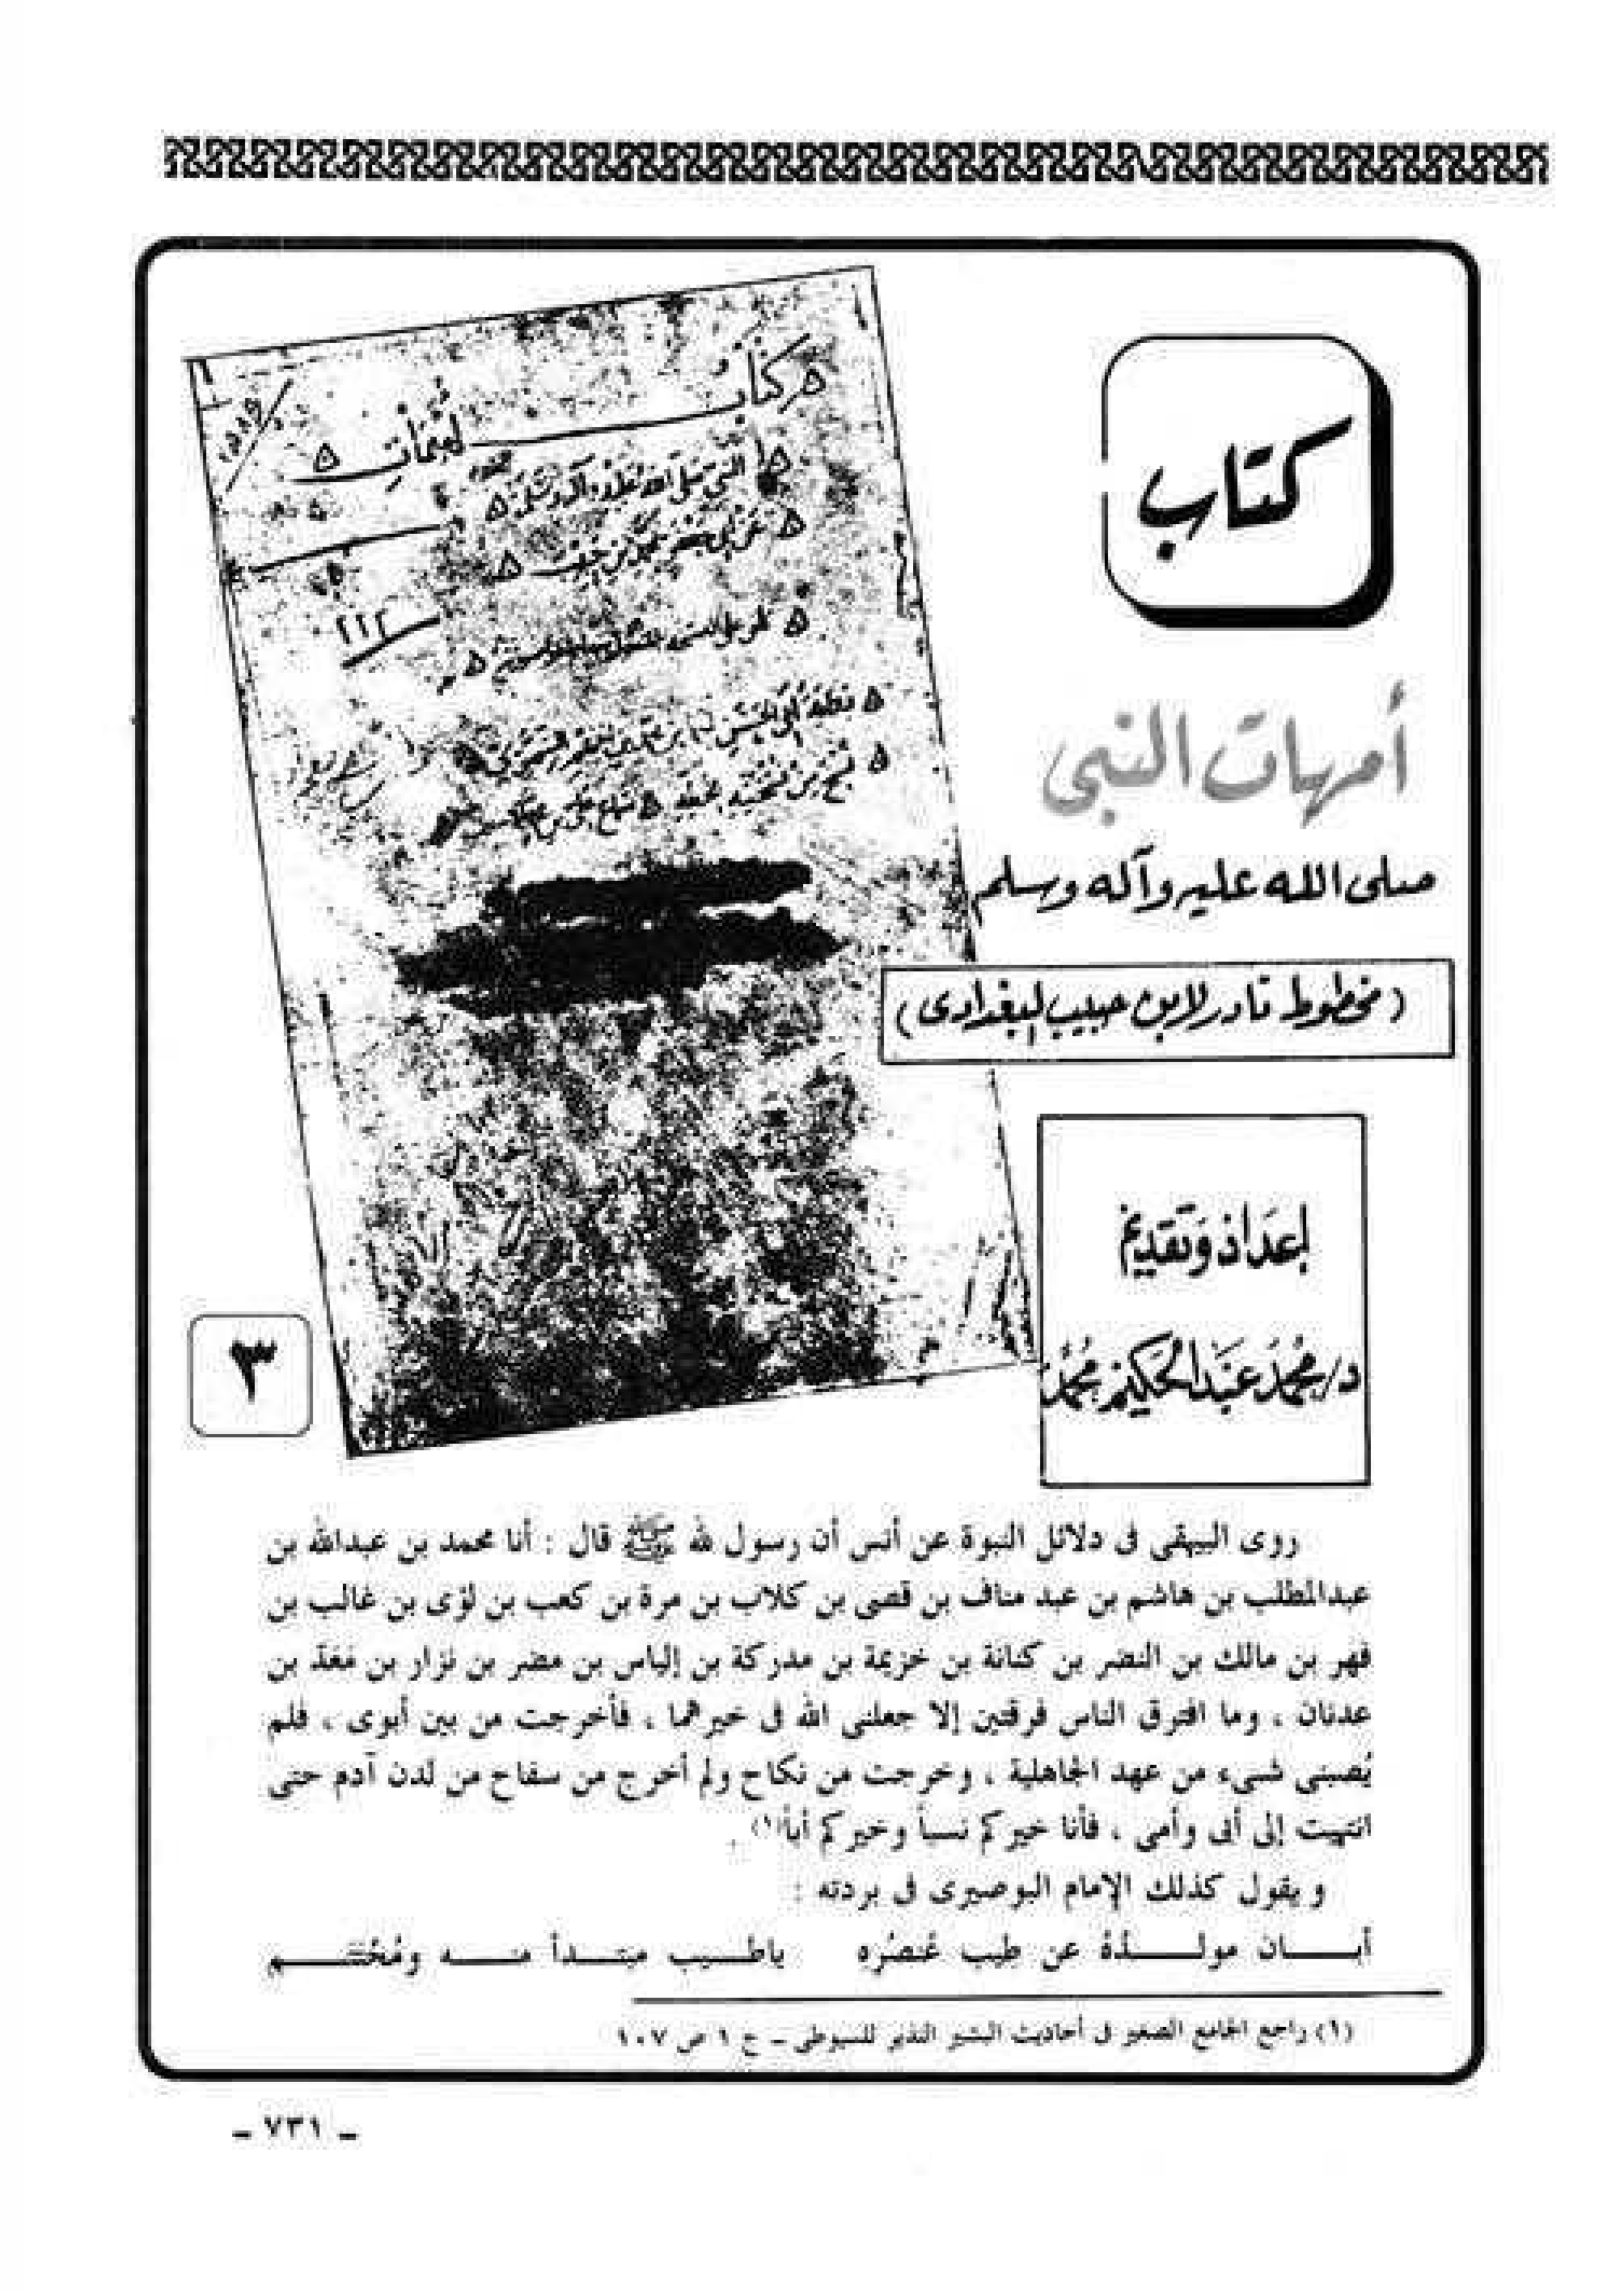 كتاب
أمهات النبى
صلى الله عليه وآله وسلم
(مخطوط نادر لابن حبيب البغدادى)
إعداد وتقديم
د/محمد عبد الحكيم محمد
٣
كتاب
أمهات
النبي صلى الله عليه وآله وسلم
١١٢
روى البيهقى فى دلائل النبوة عن أنس أن رسول لله ﷺ قال : أنا محمد بن عبدالله بن
عبدالمطلب بن هاشم بن عبد مناف بن قصى بن كلاب بن مرة بن كعب بن لؤى بن غالب بن
فهر بن مالك بن النضر بن كنانة بن خزيمة بن مدركة بن إلياس بن مضر بن نزار بن مَعَد بن
عدنان ، وما افترق الناس فرقتين إلا جعلنى الله فى خيرهما ، فأخرجت من بين أبوى ، فلم
يُصبنى شىء من عهد الجاهلية ، وخرجت من نكاح ولم أخرج من سفاح من لدن آدم حتى
انتهيت إلى أبى وأمى ، فأنا خيركم نسباً وخيركم أباً(١) .
ويقول كذلك الإمام البوصيرى فى بردته :
أبــان مولــدُهُ عن طِيب عُنصُره ياطــيب مبتــدأ منــه ومُخْتَتــم
(١) راجع الجامع الصغير فى أحاديث البشير النذير للسيوطى ـ ج ١ ص ١٠٧
ـ ٧٣١ ـ